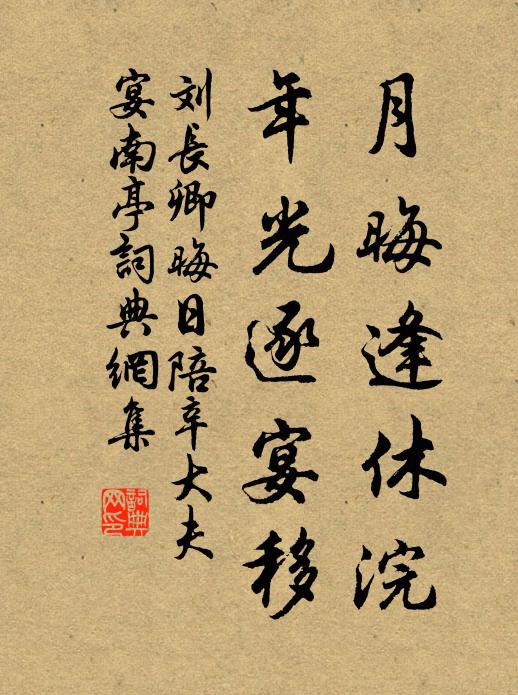 月晦逢休浣
年光逐宴移
刘長卿晦日陪辛大夫
宴南亭詞典網集
詞典网印